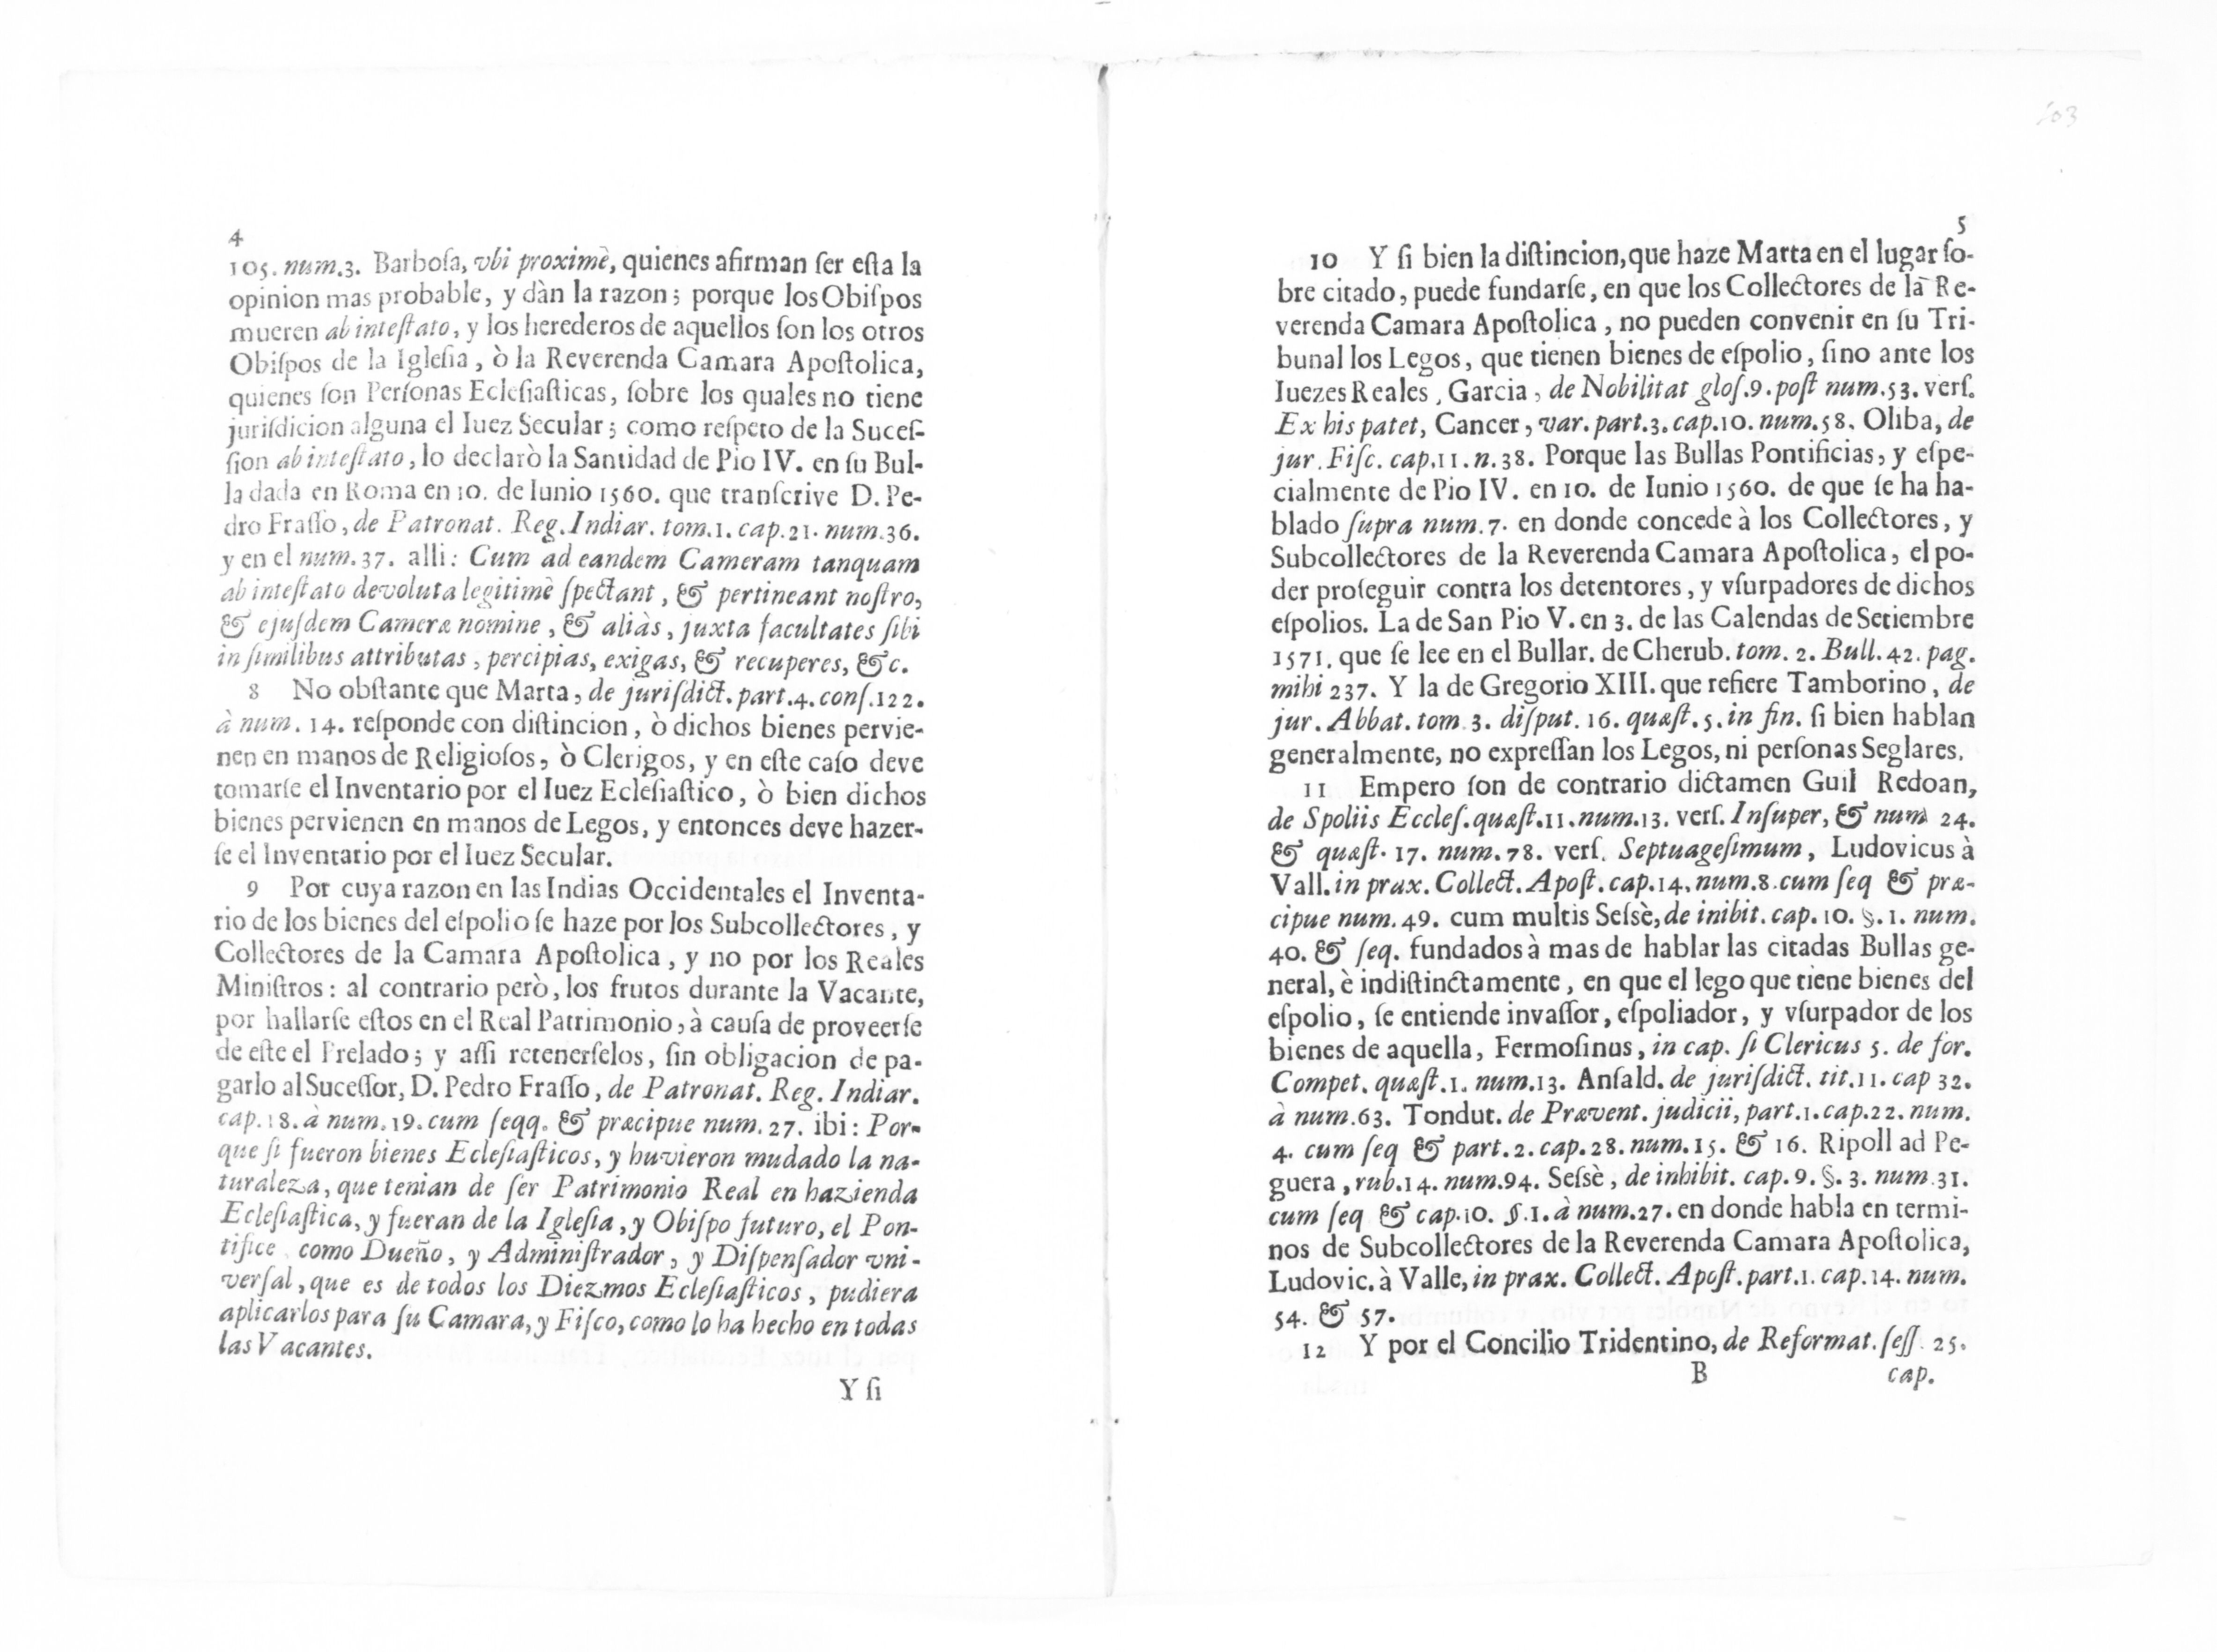 4
105. num.3. Barboſa, vbi proximè, quienes afirman ſer eſta la
opinion mas probable, y dàn la razon; porque los Obiſpos
mueren ab inteſtato, y los herederos de aquellos ſon los otros
Obiſpos de la Igleſia, ò la Reverenda Camara Apoſtolica,
quienes ſon Perſonas Ecleſiaſticas, ſobre los quales no tiene
juriſdicion alguna el Iuez Secular; como reſpeto de la Suceſ-
ſion ab inteſtato, lo declarò la Santidad de Pio IV. en ſu Bul-
la dada en Roma en 10. de Iunio 1560. que tranſcrive D. Pe-
dro Fraſſo, de Patronat. Reg. Indiar. tom.1. cap.21. num.36.
y en el num.37. alli: Cum ad eandem Cameram tanquam
ab inteſtato devoluta legitimè ſpectant, & pertineant noſtro,
& ejuſdem Cameræ nomine, & aliàs, juxta facultates ſibi
in ſimilibus attributas, percipias, exigas, & recuperes, &c.
8 No obſtante que Marta, de juriſdict. part.4. conſ.122.
à num. 14. reſponde con diſtincion, ò dichos bienes pervie-
nen en manos de Religioſos, ò Clerigos, y en eſte caſo deve
tomarſe el Inventario por el Iuez Ecleſiaſtico, ò bien dichos
bienes pervienen en manos de Legos, y entonces deve hazer-
ſe el Inventario por el Iuez Secular.
9 Por cuya razon en las Indias Occidentales el Inventa-
rio de los bienes del eſpolio ſe haze por los Subcollectores, y
Collectores de la Camara Apoſtolica, y no por los Reales
Miniſtros: al contrario però, los frutos durante la Vacante,
por hallarſe eſtos en el Real Patrimonio, à cauſa de proveerſe
de eſte el Prelado; y aſſi retenerſelos, ſin obligacion de pa-
garlo al Suceſſor, D. Pedro Fraſſo, de Patronat. Reg. Indiar.
cap.18. à num.19. cum ſeqq. & præcipue num.27. ibi: Por-
que ſi fueron bienes Ecleſiaſticos, y huvieron mudado la na-
turaleza, que tenian de ſer Patrimonio Real en hazienda
Ecleſiaſtica, y fueran de la Igleſia, y Obiſpo futuro, el Pon-
tifice como Dueño, y Adminiſtrador, y Diſpenſador vni-
verſal, que es de todos los Diezmos Ecleſiaſticos, pudiera
aplicarlos para ſu Camara, y Fiſco, como lo ha hecho en todas
las Vacantes.
Y ſi
103
5
10 Y ſi bien la diſtincion, que haze Marta en el lugar ſo-
bre citado, puede fundarſe, en que los Collectores de la Re-
verenda Camara Apoſtolica, no pueden convenir en ſu Tri-
bunal los Legos, que tienen bienes de eſpolio, ſino ante los
Iuezes Reales, Garcia, de Nobilitat gloſ.9. poſt num.53. verſ.
Ex his patet, Cancer, var. part.3. cap.10. num.58. Oliba, de
jur. Fiſc. cap.11. n.38. Porque las Bullas Pontificias, y eſpe-
cialmente de Pio IV. en 10. de Iunio 1560. de que ſe ha ha-
blado ſupra num.7. en donde concede à los Collectores, y
Subcollectores de la Reverenda Camara Apoſtolica, el po-
der proſeguir contra los detentores, y vſurpadores de dichos
eſpolios. La de San Pio V. en 3. de las Calendas de Setiembre
1571. que ſe lee en el Bullar. de Cherub. tom. 2. Bull. 42. pag.
mihi 237. Y la de Gregorio XIII. que refiere Tamborino, de
jur. Abbat. tom 3. diſput. 16. quæſt. 5. in fin. ſi bien hablan
generalmente, no expreſſan los Legos, ni perſonas Seglares.
11 Empero ſon de contrario dictamen Guil Redoan,
de Spoliis Eccleſ. quæſt.11. num.13. verſ. Inſuper, & num 24.
& quæſt. 17. num. 78. verſ. Septuageſimum, Ludovicus à
Vall. in prax. Collect. Apoſt. cap.14. num.8. cum ſeq & præ-
cipue num. 49. cum multis Seſsè, de inibit. cap. 10. §. 1. num.
40. & ſeq. fundados à mas de hablar las citadas Bullas ge-
neral, è indiſtinctamente, en que el lego que tiene bienes del
eſpolio, ſe entiende invaſſor, eſpoliador, y vſurpador de los
bienes de aquella, Fermoſinus, in cap. ſi Clericus 5. de for.
Compet. quæſt.1. num.13. Anſald. de juriſdict. tit.11. cap 32.
à num.63. Tondut. de Prævent. judicii, part.1. cap.22. num.
4. cum ſeq & part. 2. cap. 28. num. 15. & 16. Ripoll ad Pe-
guera, rub.14. num.94. Seſsè, de inhibit. cap. 9. §. 3. num.31.
cum ſeq & cap.10. §.1. à num.27. en donde habla en termi-
nos de Subcollectores de la Reverenda Camara Apoſtolica,
Ludovic. à Valle, in prax. Collect. Apoſt. part.1. cap. 14. num.
54. & 57.
12 Y por el Concilio Tridentino, de Reformat. ſeſſ. 25.
B cap.